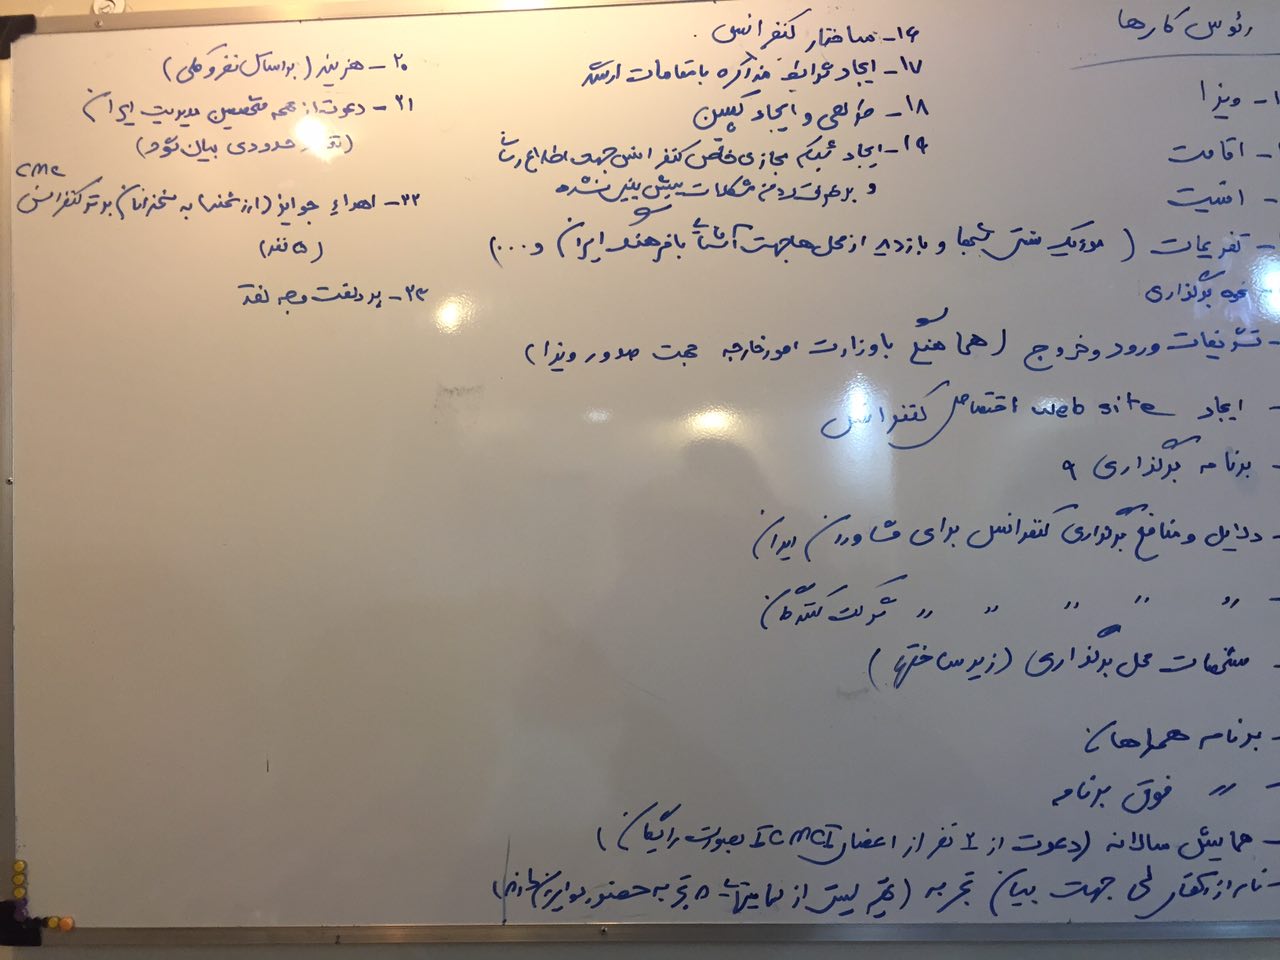 رئوس کارها
۱- ویزا
- اقامت
- امنیت
- تفریحات ( موزیک سنتی شبها و بازدید از محل ها جهت آشنائی با فرهنگ ایران و ...)
- نحوه برگذاری
- تشریفات ورود و خروج (هماهنگی با وزارت امور خارجه جهت صدور ویزا)
- ایجاد web site اختصاصی کنفرانس
- برنامه برگذاری ۹
- دلایل و منافع برگذاری کنفرانس برای مشاوران ایران
- " " " " " شرکت کنندگان
- مشخصات محل برگذاری (زیرساختها)
- برنامه همراهان
- " فوق برنامه
- همایش سالانه (دعوت از ۲ نفر از اعضای ICMCI بصورت رایگان)
جهت بیان تجربه
۱۶- ساختار کنفرانس.
۱۷- ایجاد شرایط مذاکره با مقامات ارشد
۱۸- طراحی و ایجاد کمپین
۱۹- ایجاد شبکه مجازی خاص کنفرانس جهت اطلاع رسانی
و برطرف کردن مشکلات پیش بینی نشده
۲۰- هزینه (براساس نفر و کلی)
۲۱- دعوت از متخصصین مدیریت ایران
حدودی بیان شود)
CMC
۲۲- اهداء جوایز (ارزشمند) به سخنرانان برتر کنفرانس
(۵ نفر)
۲۳- پرداخت وجه نقد